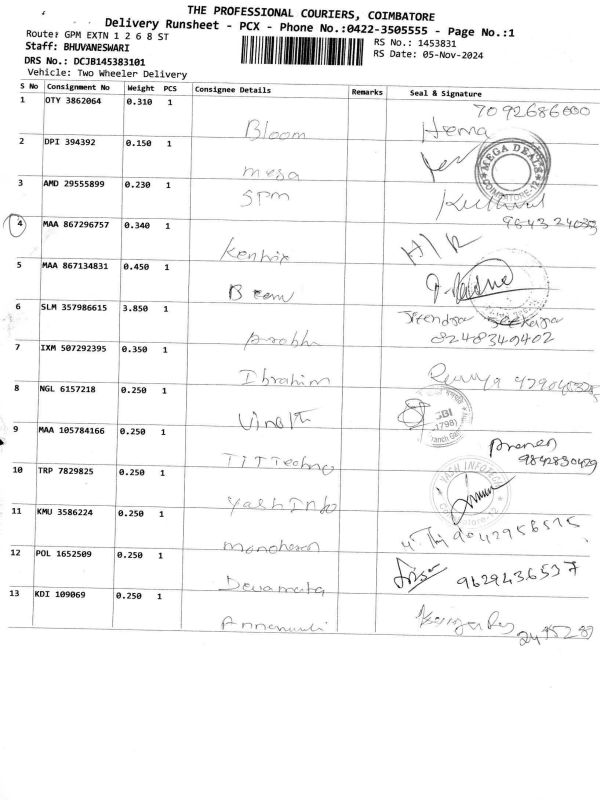 THE PROFESSIONAL COURIERS, COIMBATORE
Delivery Runsheet - PCX - Phone No.:0422-3505555 - Page No.:1
Route: GPM EXTN 1 2 6 8 ST
RS No.: 1453831
Staff: BHUVANESWARI
RS Date: 05-Nov-2024
DRS No.: DCJB145383101
Vehicle: Two Wheeler Delivery
S No Consignment No Weight PCS Consignee Details Remarks Seal & Signature
1 OTY 3862064 0.310 1 Bloom 7092686000 Hema
2 DPI 394392 0.150 1 mesa MEGA DEALS COIMBATORE-12
3 AMD 29555899 0.230 1 SPM
4 MAA 867296757 0.340 1 H/R
5 MAA 867134831 0.450 1 B team
6 SLM 357986615 3.850 1 Prabhu 8248349402
7 IXM 507292395 0.350 1 Ibrahim
8 NGL 6157218 0.250 1 Vinoth SBI
9 MAA 105784166 0.250 1 TIT Techno 9842830429
10 TRP 7829825 0.250 1 Yash Info YASH INFO
11 KMU 3586224 0.250 1 manoharan
12 POL 1652509 0.250 1 Devamata 9629436537
13 KDI 109069 0.250 1